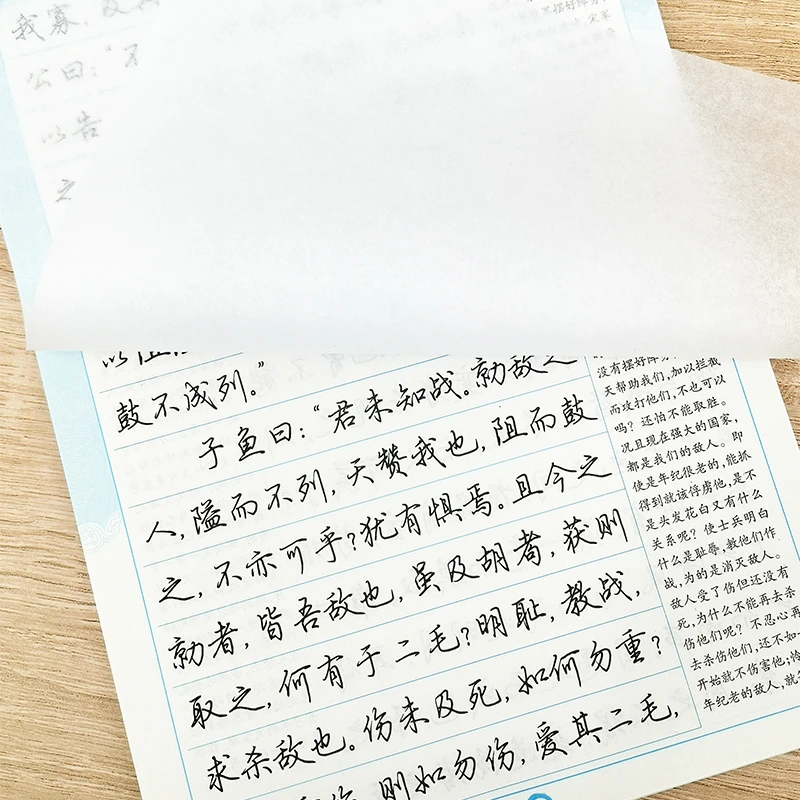 我寡，及其
公曰：“不
以告
之
鼓不成列。”
子鱼曰：“君未知战。勍敌之
人，隘而不列，天赞我也，阻而鼓
之，不亦可乎？犹有惧焉。且今之
勍者，皆吾敌也，虽及胡耇，获则
取之，何有于二毛？明耻，教战，
求杀敌也。伤未及死，如何勿重？
则如勿伤，爱其二毛，
没有摆好阵势
天帮助我们，加以拦截
而攻打他们，不也可以
吗？还怕不能取胜。
况且现在强大的国家，
都是我们的敌人。即
使是年纪很老的，能抓
得到就该俘虏他，是不
是头发花白又有什么
关系呢？使士兵明白
什么是耻辱，教他们作
战，为的是消灭敌人。
敌人受了伤但还没有
死，为什么不能再去杀
伤他们呢？不忍心再
去杀伤他们，还不如一
开始就不伤害他；怜
年纪老的敌人，就